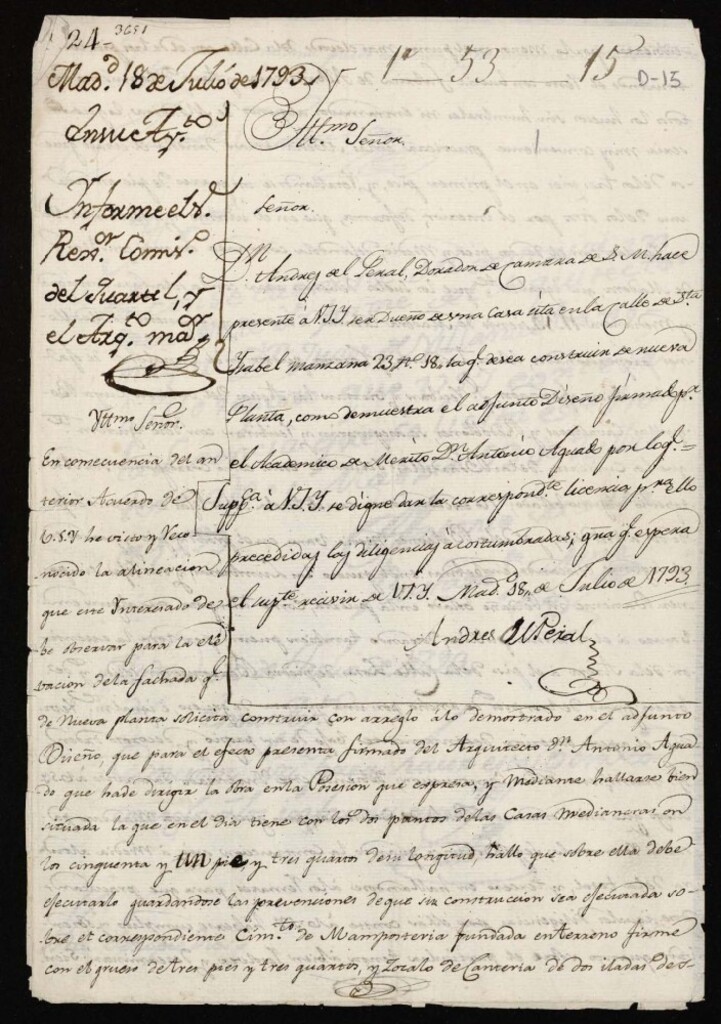 24- 3651
1º 53 15
D-15
Madd. 18 de Julio de 1793
En su Ayto
Informe el Sr.
Rexor Comiso
del Quartel, y
el Arqto. mor
Yttmo Señor.
Señor.
Dn Andres del Peral, Dorador de Camara de S. M. hace
presente à V.I.Y. ser Dueño de una Casa sita en la Calle de Sta
Isabel manzana 23 no. 18. la q. desea construir de nueva
Planta, como demuestra el adjunto Diseño firmado pr.
el Academico de Merito Dn. Antonio Aguado por lo q. =
Suppca à V.I.Y. se digne dar la correspondte licencia pra ello
precedidas las diligencias acostumbradas; gra q. espera
el supte recivir de V.I.Y. Madd. 18, de Julio de 1793
Andres del Peral
Yttmo Señor.
En consecuencia del an
terior Acuerdo de
V.S.Y he visto y reco
nocido la alineacion
que este Ynteresado de
be observar para la ele
vacion de la fachada q.
de Nueva planta solicita construir con arreglo à lo demostrado en el adjunto
Diseño, que para el efecto presenta firmado del Arquitecto Dn. Antonio Agua
do que ha de dirigir la obra en la Posesion que expresa, y Mediante hallarse bien
situada la que en el dia tiene con los dos puntos de las Casas Medianeras en
los cinquenta y un pie y tres quartos de su longitud, hallo que sobre ella debe
ejecutarlo guardandose las prevenciones de que su construccion sea ejecutada so-
bre el correspondiente Cimto. de Mamposteria fundada en terreno firme
con el grueso de tres pies y tres quartos, y Zocalo de Canteria de dos iladas de s-